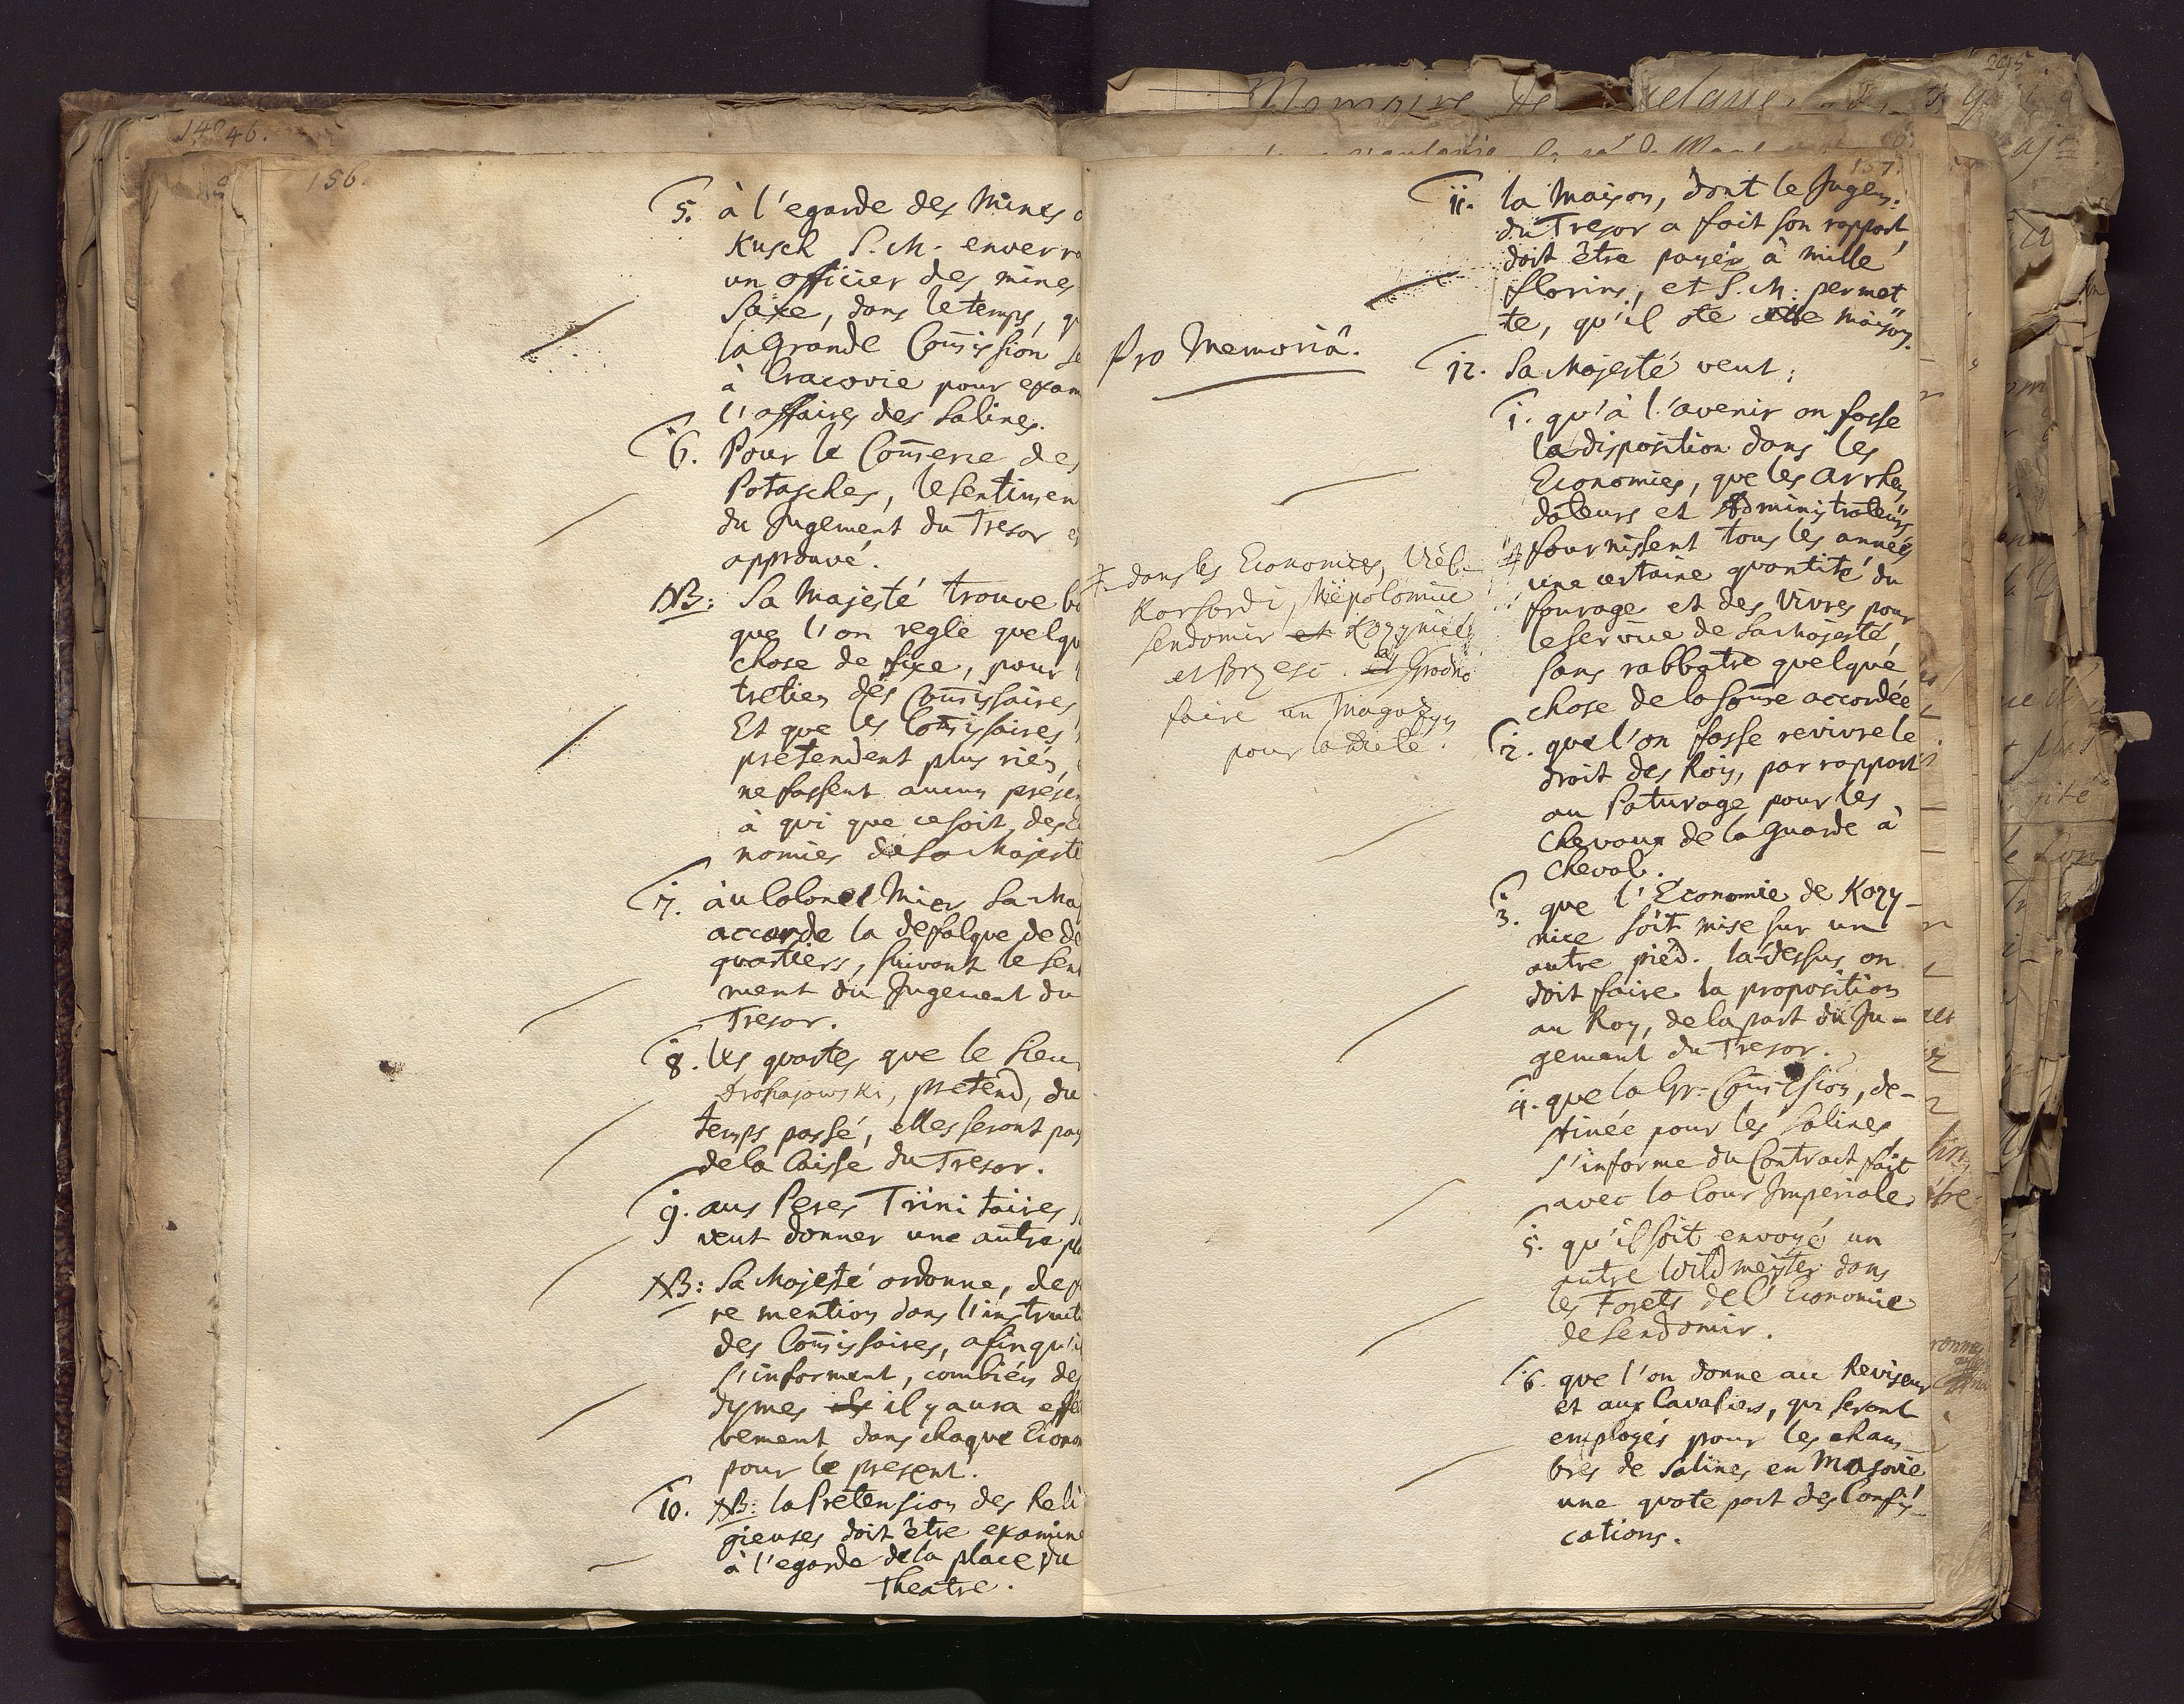 156.
5. à l'egarde des Mines
Kusch S. M. enverra
un officier des mines
Saxe, dans le temps, q
la Grande Com̄ission se
à Cracovie pour exam
l'affaires des Salines.
6. Pour le Com̄erce des
Potasches, le sentimen
du Jugement du Tresor e
approuvé.
NB: Sa Majesté trouve bo
que l'on regle quelqu
chose de fixe, pour l
tretien des Com̄issaires,
Et que les Com̄issaires
prétendent plus rien,
ne fassent aucun présen
à qui que ce soit, des
nomies de Sa Majesté
7. àu Colonel Mier Sa Ma
accorde la defalque de de
quartiers, suivant le sen
ment du Jugement du
Tresor.
8. les quartes que le Sieu
Drohajowski, pretend, du
temps passé, elles seront pay
de la Caisse du Tresor.
9. aus Peres Trinitaires
veut donner une autre pl
NB: Sa Majesté ordonne, de f
re mention dans l'instructi
des Com̄issaires, afin qu'i
s'informent, combien de
dymes ils il y aura effe
vement dans chaque Econo
pour le present.
10. NB: la Prétension des Reli
gieuses doit être examine
à l'egarde de la place du
Theatre.
157.
11. la Maison, dont le Jugem:
du Tresor a fait son rapport,
doit être payéx à mille
florins, et S. M: permet
te, qu'il ôte cette maison.
Pro Memoriâ.
12. Sa Majesté veut;
1. qu'à l'avenir on fasse
la disposition dans les
Economies, que les Arrhen
dateurs et Administrateurs
fournissent tous les années
une certaine quantité du
fourage et des Vivres pour
le service de Sa Majesté,
sans rabbatre quelque
chose de la som̄e accordée
dans les Economies, Viel
Korsordi, Niepolomice
Sendomir et Kozynice
et Brzesc. et Grodno
faire un Magazyn
pour la diete.
2. que l'on fasse revivre le
droit des Rois, par rapport
au Paturage pour les
Chevaux de la Guarde à
Cheval.
3. que l'Economie de Kozy-
nice soit mise sur un
autre pied. la-dessus on
doit faire la proposition
au Roy, de la part du Ju-
gement du Tresor.
4. que la Gr: Com̄ission, de-
stinée pour les Salines
s'informe du Contract fait
avec la Cour Imperiale
5. qu'il soit envoyé un
autre Wildmeister dans
les Forets de l'Economie
de Sendomir.
6. que l'on donne au Reviseur
et aux Cavaliers, qui seront
employés pour les cham-
bres de Salines en Masovie
une quote part des Confis-
cations.